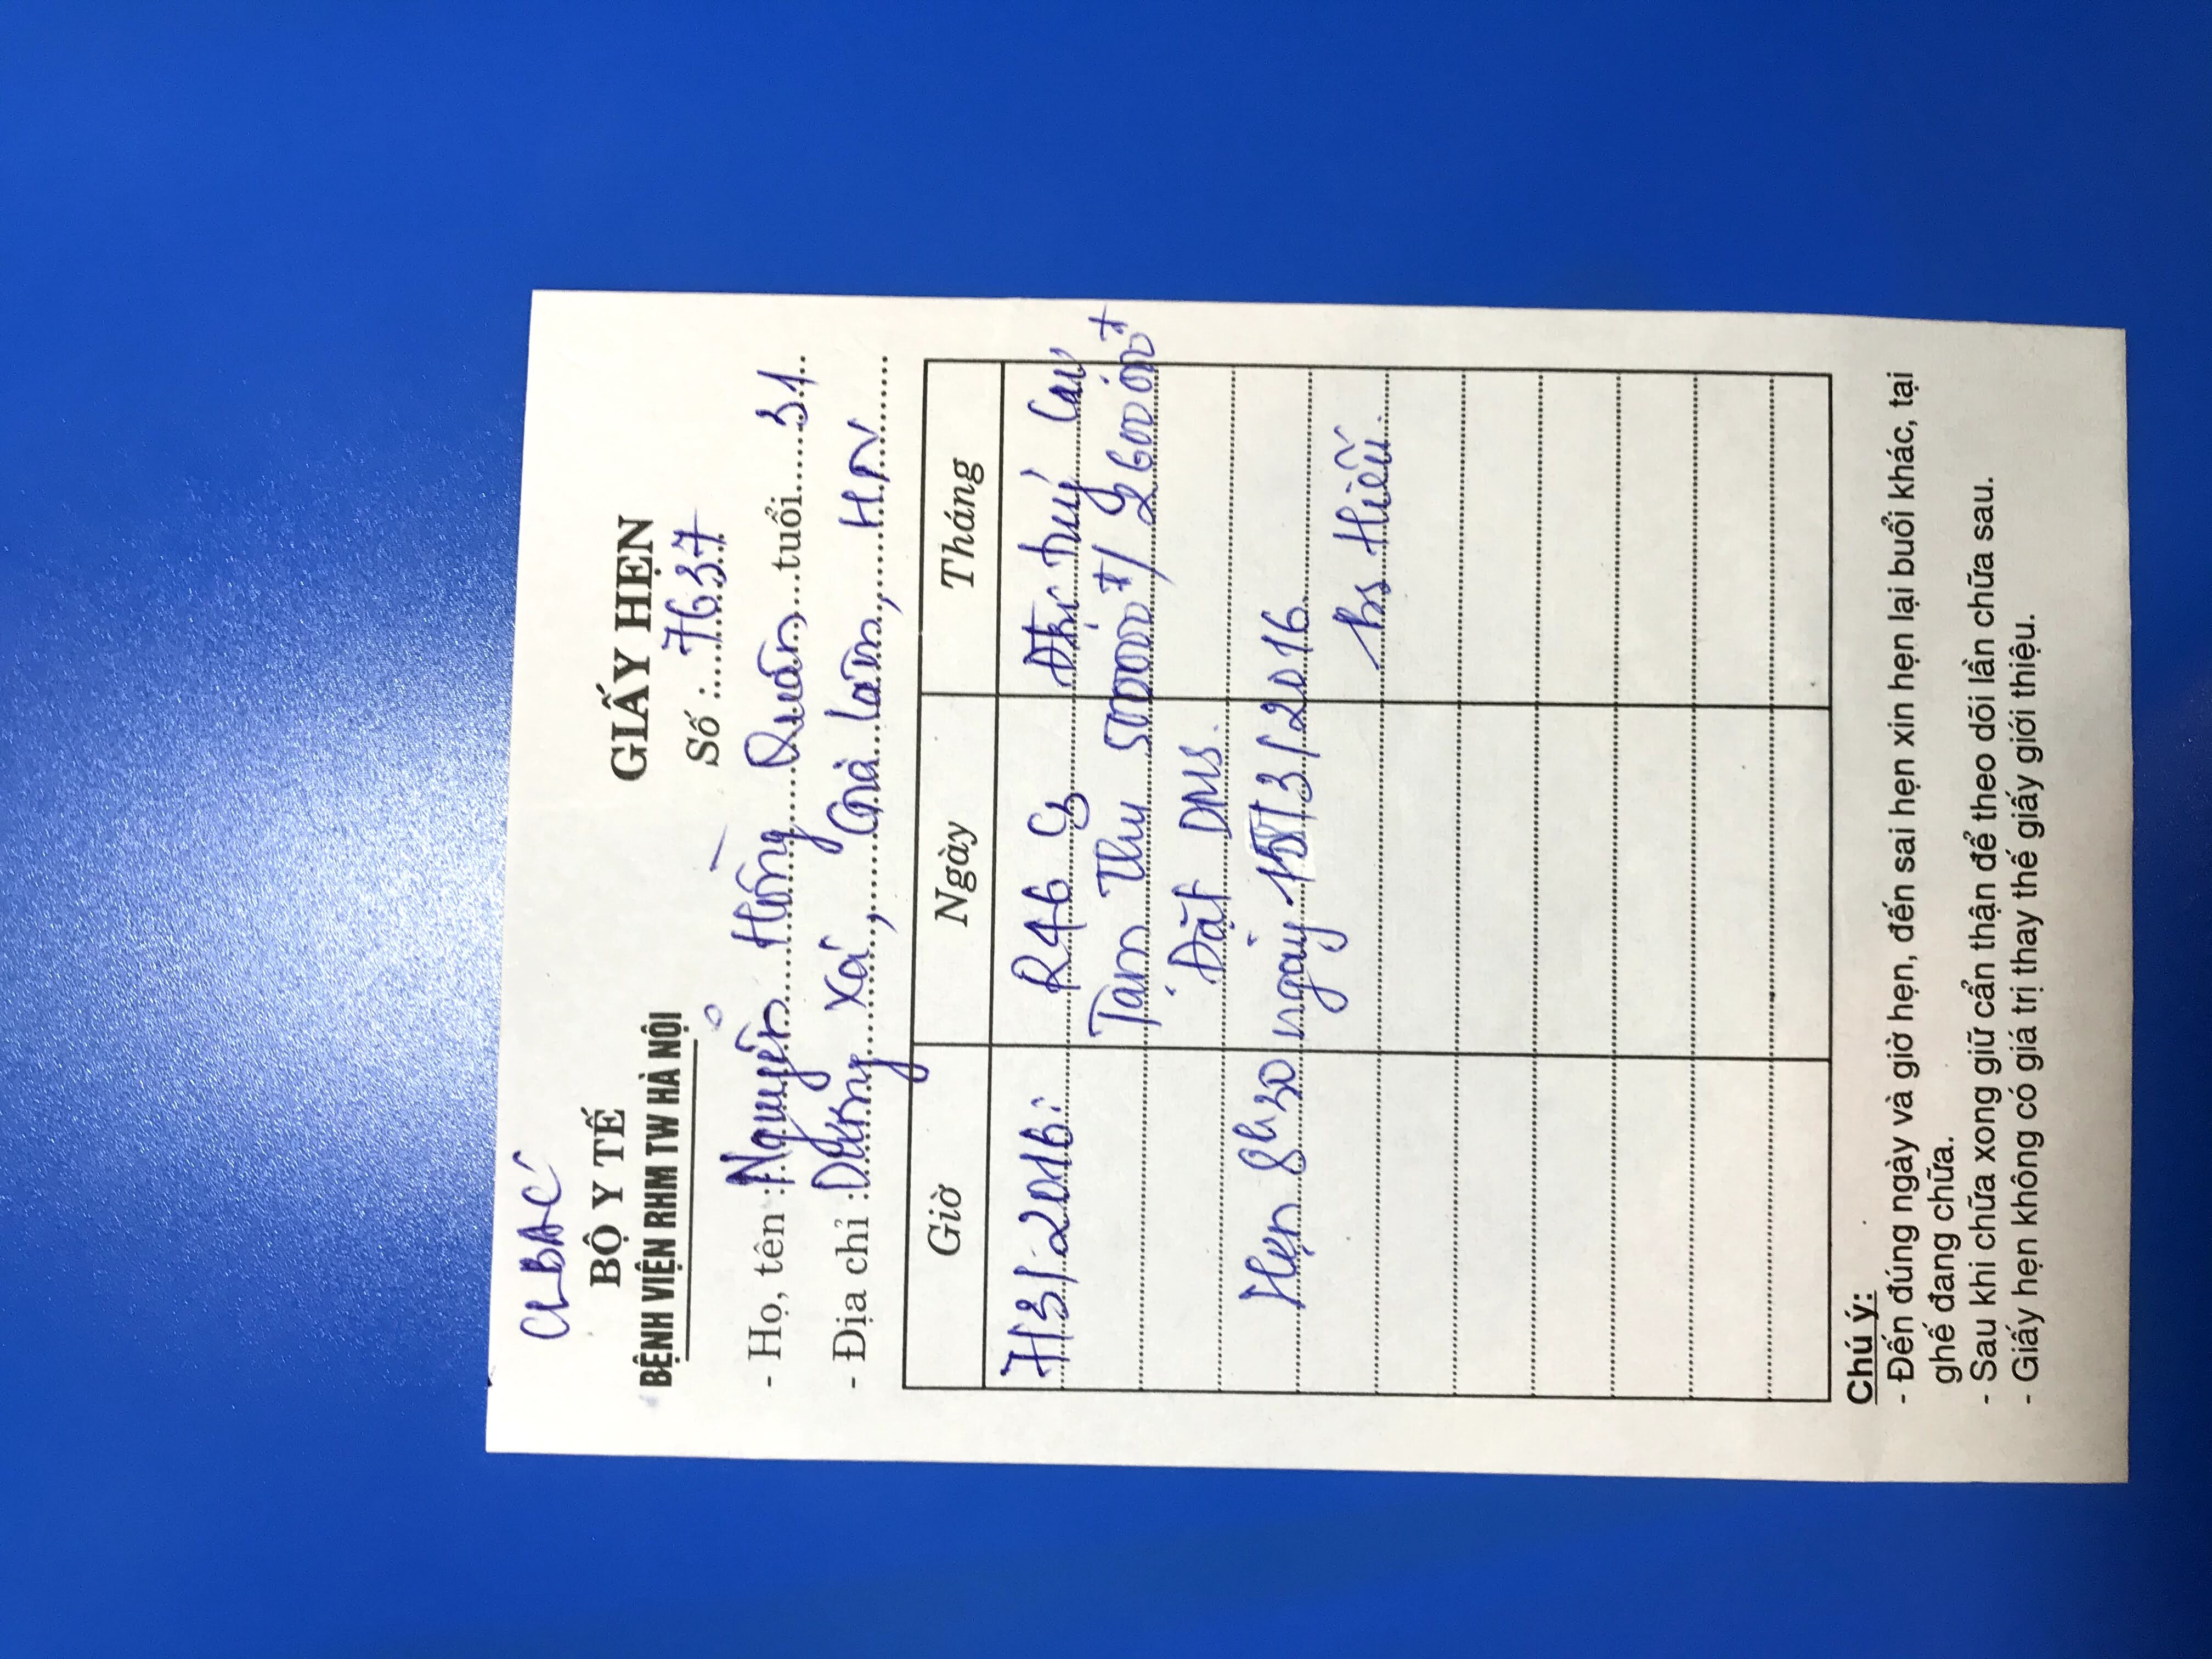 BỘ Y TẾ
BỆNH VIỆN RHM TW HÀ NỘI
GIẤY HẸN
Số : 7637
- Họ, tên : Nguyễn Hồng Quân tuổi 31
- Địa chỉ : Dương Xá, Gia Lâm, HN
Giờ Ngày Tháng
7/3/2016: R46 Đtrị tuỷ lại
Tạm thu 500000đ/ 2600000đ
Đặt DMS.
Hẹn 8h30 ngày 15/3/2016.
Bs Hiếu.
Chú ý:
- Đến đúng ngày và giờ hẹn, đến sai hẹn xin hẹn lại buổi khác, tại
ghế đang chữa.
- Sau khi chữa xong giữ cẩn thận để theo dõi lần chữa sau.
- Giấy hẹn không có giá trị thay thế giấy giới thiệu.